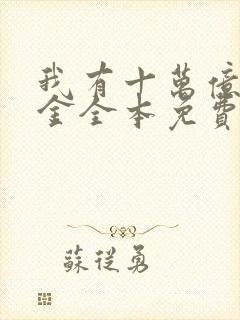 我有十萬億
金全本免費
蘇從勇